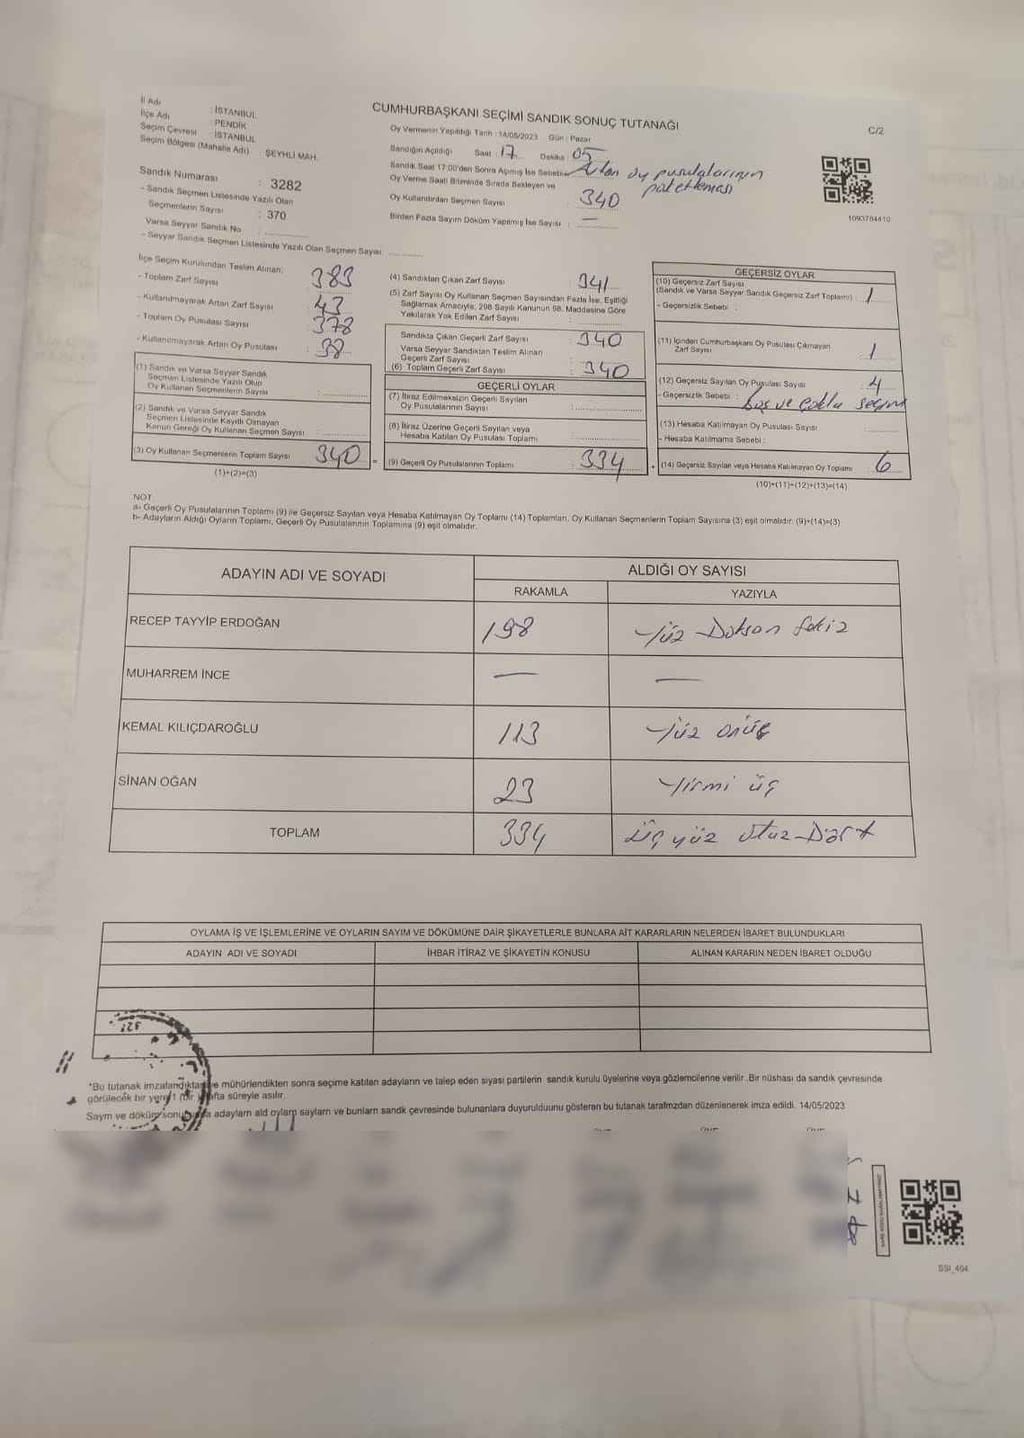 CUMHURBAŞKANI SEÇİMİ SANDIK SONUÇ TUTANAĞI
C/2
İl Adı : İSTANBUL
İlçe Adı : PENDİK
Seçim Çevresi : İSTANBUL
Seçim Bölgesi (Mahalle Adı) : ŞEYHLİ MAH.
Sandık Numarası : 3282
- Sandık Seçmen Listesinde Yazılı Olan
Seçmenlerin Sayısı : 370
Varsa Seyyar Sandık No :
- Seyyar Sandık Seçmen Listesinde Yazılı Olan Seçmen Sayısı
Oy Vermenin Yapıldığı Tarih : 14/05/2023 Gün : Pazar
Sandığın Açıldığı Saat : 17 Dakika : 05
Sandık Saat 17:00'den Sonra Açılmış İse Sebebi : Artan oy pusulalarının paketlemesi
Oy Verme Saati Bitiminde Sırada Bekleyen ve
Oy Kullandırılan Seçmen Sayısı : 340
Birden Fazla Sayım Döküm Yapılmış İse Sayısı : —
1093784410
İlçe Seçim Kurulundan Teslim Alınan;
- Toplam Zarf Sayısı : 383
- Kullanılmayarak Artan Zarf Sayısı : 43
- Toplam Oy Pusulası Sayısı : 378
- Kullanılmayarak Artan Oy Pusulası : 38
(1) Sandık ve Varsa Seyyar Sandık
Seçmen Listesinde Yazılı Olup
Oy Kullanan Seçmenlerin Sayısı :
(2) Sandık ve Varsa Seyyar Sandık
Seçmen Listesinde Kayıtlı Olmayan
Kanun Gereği Oy Kullanan Seçmen Sayısı :
(3) Oy Kullanan Seçmenlerin Toplam Sayısı : 340
(1)+(2)=(3)
(4) Sandıktan Çıkan Zarf Sayısı : 341
(5) Zarf Sayısı Oy Kullanan Seçmen Sayısından Fazla İse, Eşitliği
Sağlamak Amacıyla; 298 Sayılı Kanunun 98. Maddesine Göre
Yakılarak Yok Edilen Zarf Sayısı :
Sandıkta Çıkan Geçerli Zarf Sayısı : 340
Varsa Seyyar Sandıktan Teslim Alınan
Geçerli Zarf Sayısı :
(6) Toplam Geçerli Zarf Sayısı : 340
GEÇERLİ OYLAR
(7) İtiraz Edilmeksizin Geçerli Sayılan
Oy Pusulalarının Sayısı :
(8) İtiraz Üzerine Geçerli Sayılan veya
Hesaba Katılan Oy Pusulası Toplamı :
(9) Geçerli Oy Pusulalarının Toplamı : 334
GEÇERSİZ OYLAR
(10) Geçersiz Zarf Sayısı
(Sandık ve Varsa Seyyar Sandık Geçersiz Zarf Toplamı) : 1
- Geçersizlik Sebebi :
(11) İçinden Cumhurbaşkanı Oy Pusulası Çıkmayan
Zarf Sayısı : 1
(12) Geçersiz Sayılan Oy Pusulası Sayısı : 4
- Geçersizlik Sebebi : boş ve çoklu seçim
(13) Hesaba Katılmayan Oy Pusulası Sayısı :
- Hesaba Katılmama Sebebi :
(14) Geçersiz Sayılan veya Hesaba Katılmayan Oy Toplamı : 6
(10)+(11)+(12)+(13)=(14)
NOT
a- Geçerli Oy Pusulalarının Toplamı (9) ile Geçersiz Sayılan veya Hesaba Katılmayan Oy Toplamı (14) Toplamları, Oy Kullanan Seçmenlerin Toplam Sayısına (3) eşit olmalıdır. (9)+(14)=(3)
b- Adayların Aldığı Oyların Toplamı, Geçerli Oy Pusulalarının Toplamına (9) eşit olmalıdır.
ADAYIN ADI VE SOYADI
ALDIĞI OY SAYISI
RAKAMLA YAZIYLA
RECEP TAYYİP ERDOĞAN 198 Yüz Doksan Sekiz
MUHARREM İNCE — —
KEMAL KILIÇDAROĞLU 113 Yüz onüç
SİNAN OĞAN 23 Yirmi üç
TOPLAM 334 Üç yüz otuz-Dört
OYLAMA İŞ VE İŞLEMLERİNE VE OYLARIN SAYIM VE DÖKÜMÜNE DAİR ŞİKAYETLERLE BUNLARA AİT KARARLARIN NELERDEN İBARET BULUNDUKLARI
ADAYIN ADI VE SOYADI İHBAR İTİRAZ VE ŞİKAYETİN KONUSU ALINAN KARARIN NEDEN İBARET OLDUĞU
*Bu tutanak imzalandıktan ve mühürlendikten sonra seçime katılan adayların ve talep eden siyasi partilerin sandık kurulu üyelerine veya gözlemcilerine verilir. Bir nüshası da sandık çevresinde
görülecek bir yere 1 bir hafta süreyle asılır.
Sayım ve döküm sonu adayların ald oyların sayların ve bunların sandk çevresinde bulunanlara duyurulduunu gösteren bu tutanak tarafmzdan düzenlenerek imza edildi. 14/05/2023
SSI_494